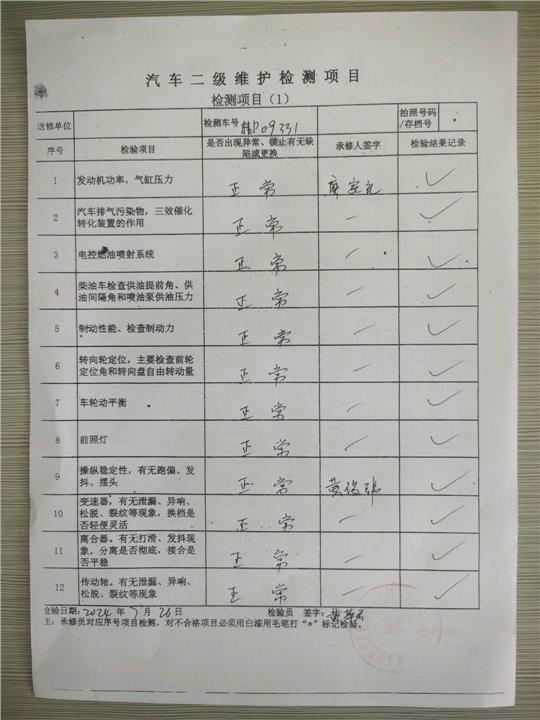 汽车二级维护检测项目
检测项目（1）
送修单位 检测车号 桂P09331 拍照号码/存档号
序号 检验项目 是否出现异常、锁止有无缺陷或更换 承修人签字 检验结果记录
1 发动机功率，气缸压力 正常 ✓
2 汽车排气污染物，三效催化转化装置的作用 正常 — ✓
3 电控燃油喷射系统 正常 — ✓
4 柴油车检查供油提前角、供油间隔角和喷油泵供油压力 正常 — ✓
5 制动性能、检查制动力 正常 — ✓
6 转向轮定位，主要检查前轮定位角和转向盘自由转动量 正常 — ✓
7 车轮动平衡 正常 — ✓
8 前照灯 正常 — ✓
9 操纵稳定性，有无跑偏、发抖、摆头 正常 ✓
10 变速器，有无泄漏、异响、松脱、裂纹等现象，换档是否轻便灵活 正常 — ✓
11 离合器，有无打滑、发抖现象，分离是否彻底，接合是否平稳 正常 — ✓
12 传动轴。有无泄漏、异响、松脱、裂纹等现象 正常 — ✓
金验日期:2024年7月26日 检验员 签字:
主：承修员对应序号项目检测，对不合格项目必须用白漆用毛笔打“×”标记检验。